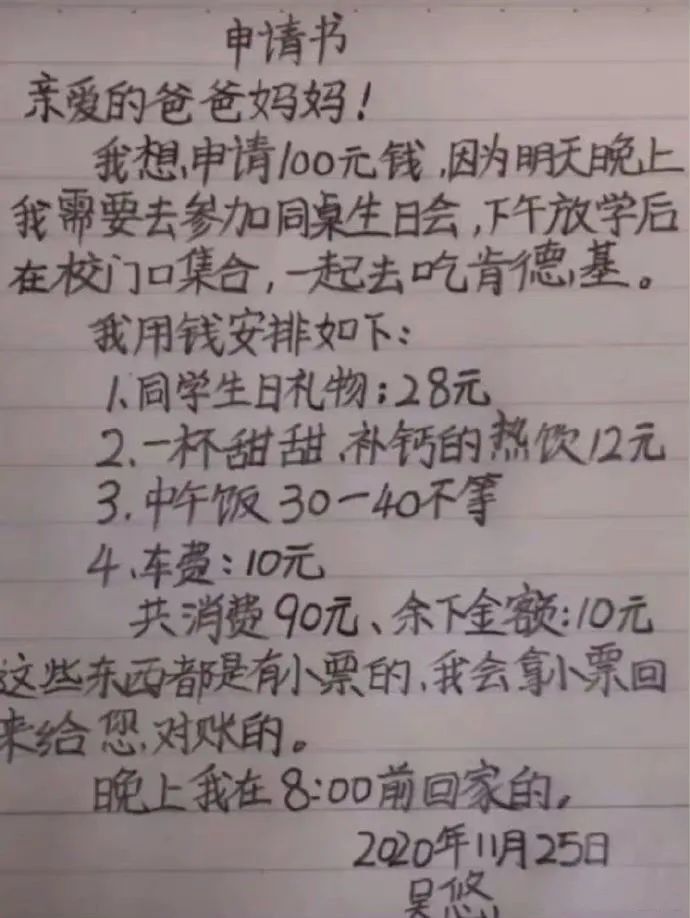 申请书
亲爱的爸爸妈妈!
我想,申请100元钱,因为明天晚上
我需要去参加同桌生日会,下午放学后
在校门口集合,一起去吃肯德基。
我用钱安排如下:
1、同学生日礼物:28元
2、一杯甜甜、补钙的热饮12元
3、中午饭30一40不等
4、车费:10元
共消费90元、余下金额:10元
这些东西都是有小票的、我会拿小票回
来给您、对账的。
晚上我在8:00前回家的。
2020年11月25日
吴悠